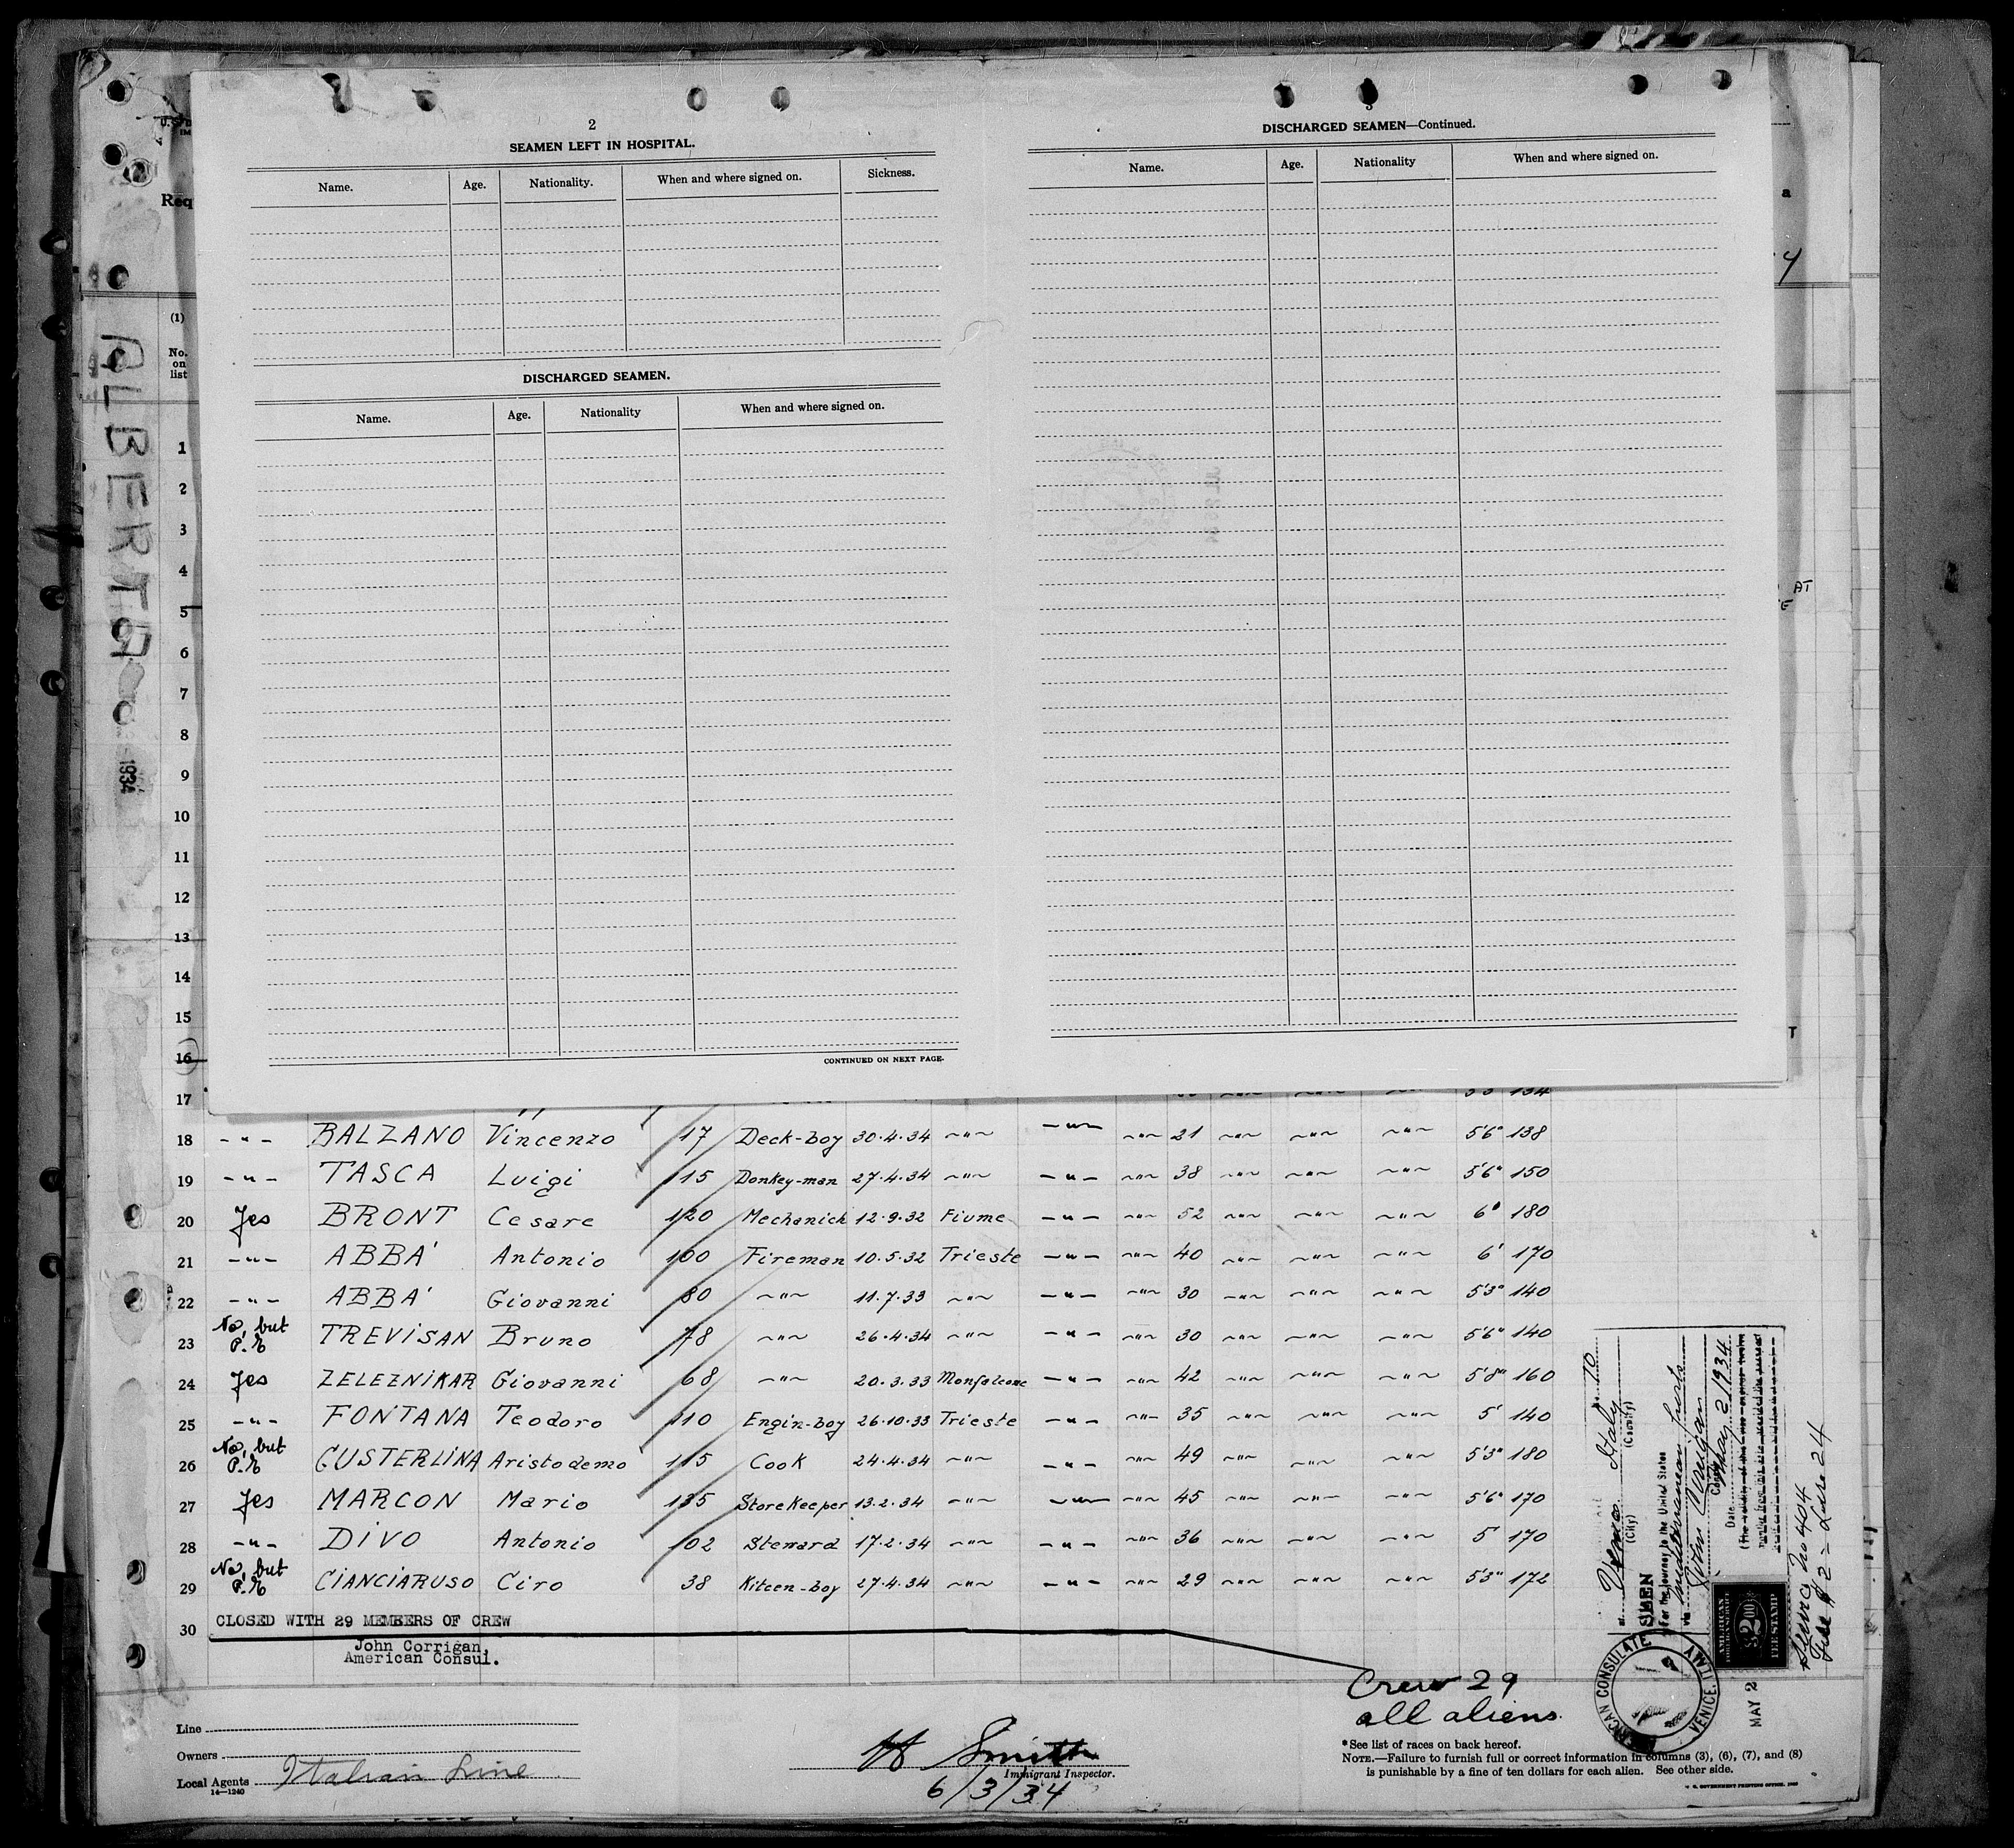 2
SEAMEN LEFT IN HOSPITAL.
Name. Age. Nationality. When and where signed on. Sickness.
DISCHARGED SEAMEN.
Name. Age. Nationality When and where signed on.
CONTINUED ON NEXT PAGE.
3
DISCHARGED SEAMEN—Continued.
Name. Age. Nationality When and where signed on.
Req
a
4
(1)
No.
on
list
ALBERTA
1934
AT
1
2
3
4
5
6
7
8
9
10
11
12
13
14
15
16
T
17 134
18 -"- BALZANO Vincenzo 17 Deck-boy 30.4.34 -"- -"- -"- 21 -"- -"- -"- 5'6" 138
19 -"- TASCA Luigi 15 Donkey-man 27.4.34 -"- -"- -"- 38 -"- -"- -"- 5'6" 150
20 Yes BRONT Cesare 120 Mechanich 12.9.32 Fiume -"- -"- 52 -"- -"- -"- 6' 180
21 -"- ABBA' Antonio 100 Fireman 10.5.32 Trieste -"- -"- 40 -"- -"- -"- 6' 170
22 -"- ABBA' Giovanni 80 -"- 11.7.33 -"- -"- -"- 30 -"- -"- -"- 5'3" 140
23 No, but P.E TREVISAN Bruno 78 -"- 26.4.34 -"- -"- -"- 30 -"- -"- -"- 5'6" 140
24 Yes ZELEZNIKAR Giovanni 68 -"- 20.3.33 Monfalcone -"- -"- 42 -"- -"- -"- 5'8" 160
25 -"- FONTANA Teodoro 110 Engin-boy 26.10.33 Trieste -"- -"- 35 -"- -"- -"- 5' 140
26 No, but P.E GUSTERLINA Aristodemo 115 Cook 24.4.34 -"- -"- -"- 49 -"- -"- -"- 5'3" 180
27 Yes MARCON Mario 135 StoreKeeper 13.2.34 -"- -"- -"- 45 -"- -"- -"- 5'6" 170
28 -"- DIVO Antonio 102 Steward 17.2.34 -"- -"- -"- 36 -"- -"- -"- 5' 170
29 No, but P.E CIANCIARUSO Ciro 38 Kiteen-boy 27.4.34 -"- -"- -"- 29 -"- -"- -"- 5'3" 172
30 CLOSED WITH 29 MEMBERS OF CREW
John Corrigan,
American Consul.
Crew 29
all aliens.
Line
Owners
Local Agents Italian Line
14—1240
H Smith
Immigrant Inspector.
6/3/34
*See list of races on back hereof.
NOTE.—Failure to furnish full or correct information in columns (3), (6), (7), and (8)
is punishable by a fine of ten dollars for each alien. See other side.
U. S. GOVERNMENT PRINTING OFFICE
Venice Italy
(City) (Country)
SEEN
For the journey to the United States
via Mediterranean ports
John Corrigan
Consul
Date May 2 1934
AMERICAN
FOREIGN SERVICE
$2.00
FEE STAMP
Service No 404
Fee $2 = Lire 24
AMERICAN CONSULATE
VENICE, ITALY
MAY 2